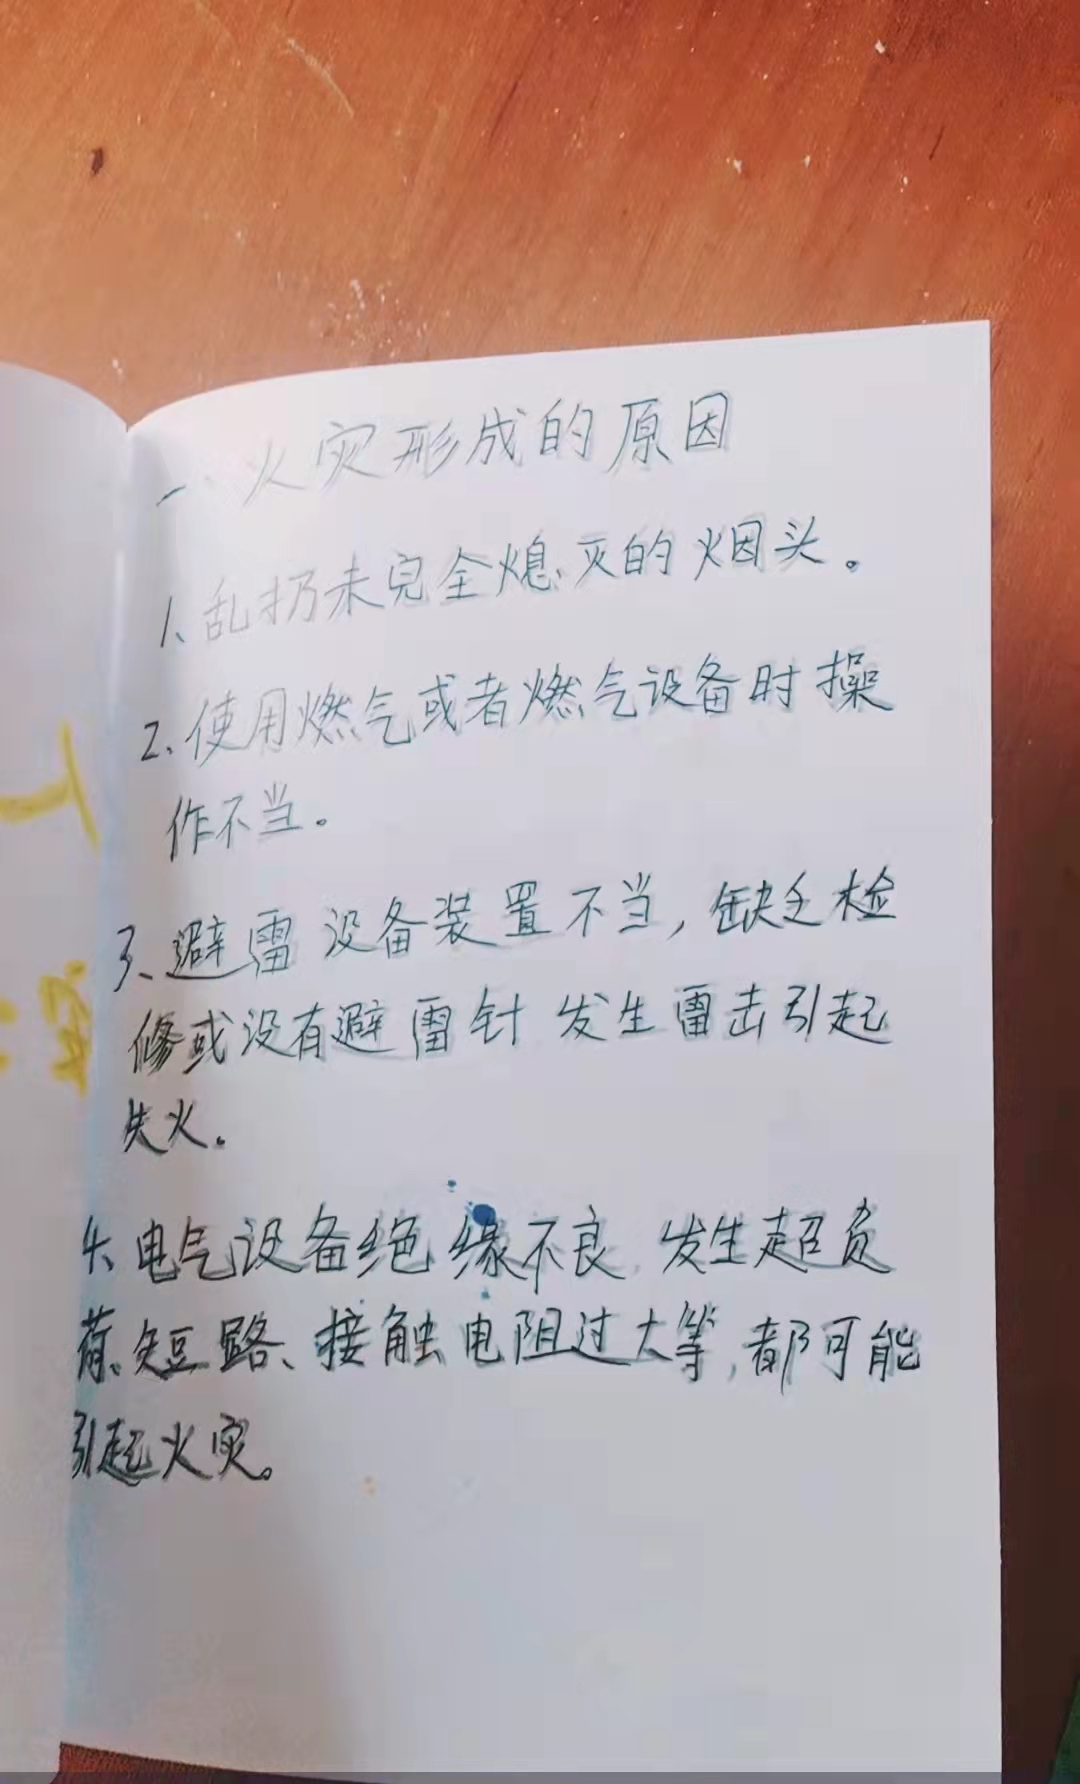 一、火灾形成的原因
1、乱扔未完全熄灭的烟头。
2、使用燃气或者燃气设备时操
作不当。
3、避雷设备装置不当,缺乏检
修或没有避雷针发生雷击引起
失火。
4、电气设备绝缘不良,发生超负
荷、短路、接触电阻过大等,都可能
引起火灾。